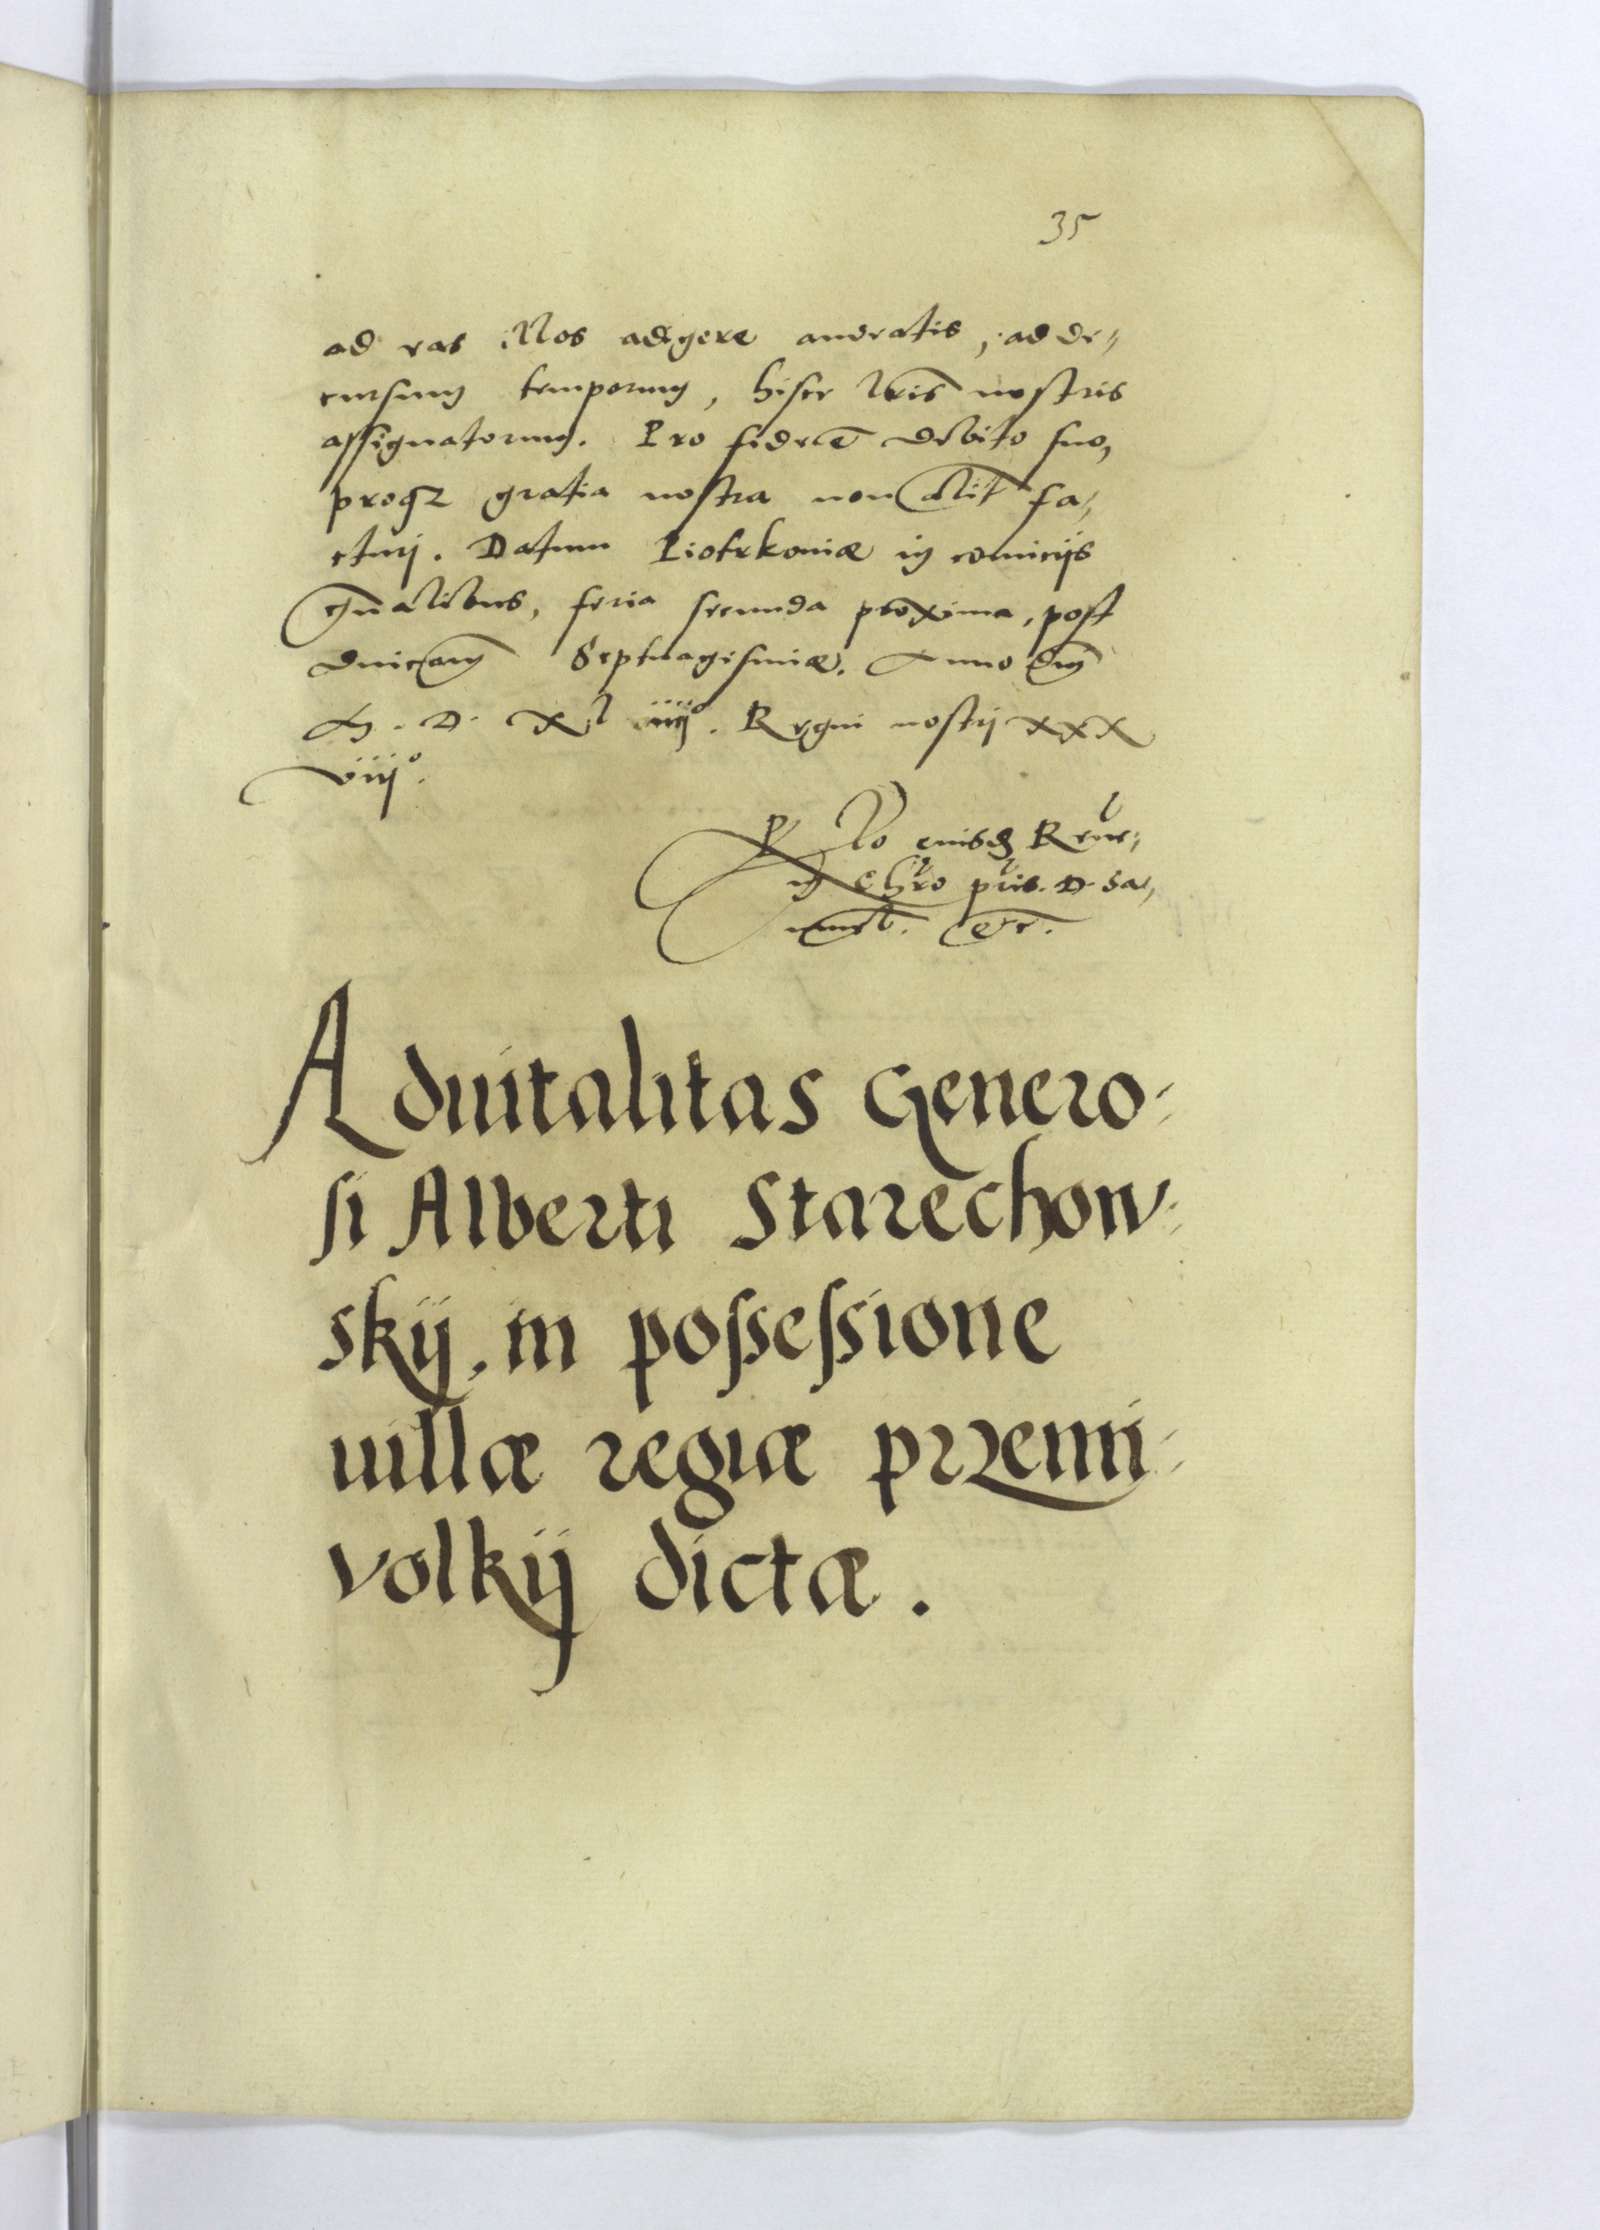 35
ad eas Nos adigere audeatis, ad de„
cursum temporum, hisce lris nostris
assignatorum. Pro fidecē debito suo,
proqz gratia nostra non alit fa„
cturi. Datum Piotrkoniæ in comicijs
gnalibus, feria secunda proxima, post
dnicam Septuagesimæ. Anno dnj
M. D. Xl iiij°. Regni nostrj XXX
viij°.
eiusdē Reue„
D. Sa„
etc.
Aduitalitas Genero„
si Alberti Starechow„
skij, in possessione
uillæ regiæ przemi„
volkij dictæ.